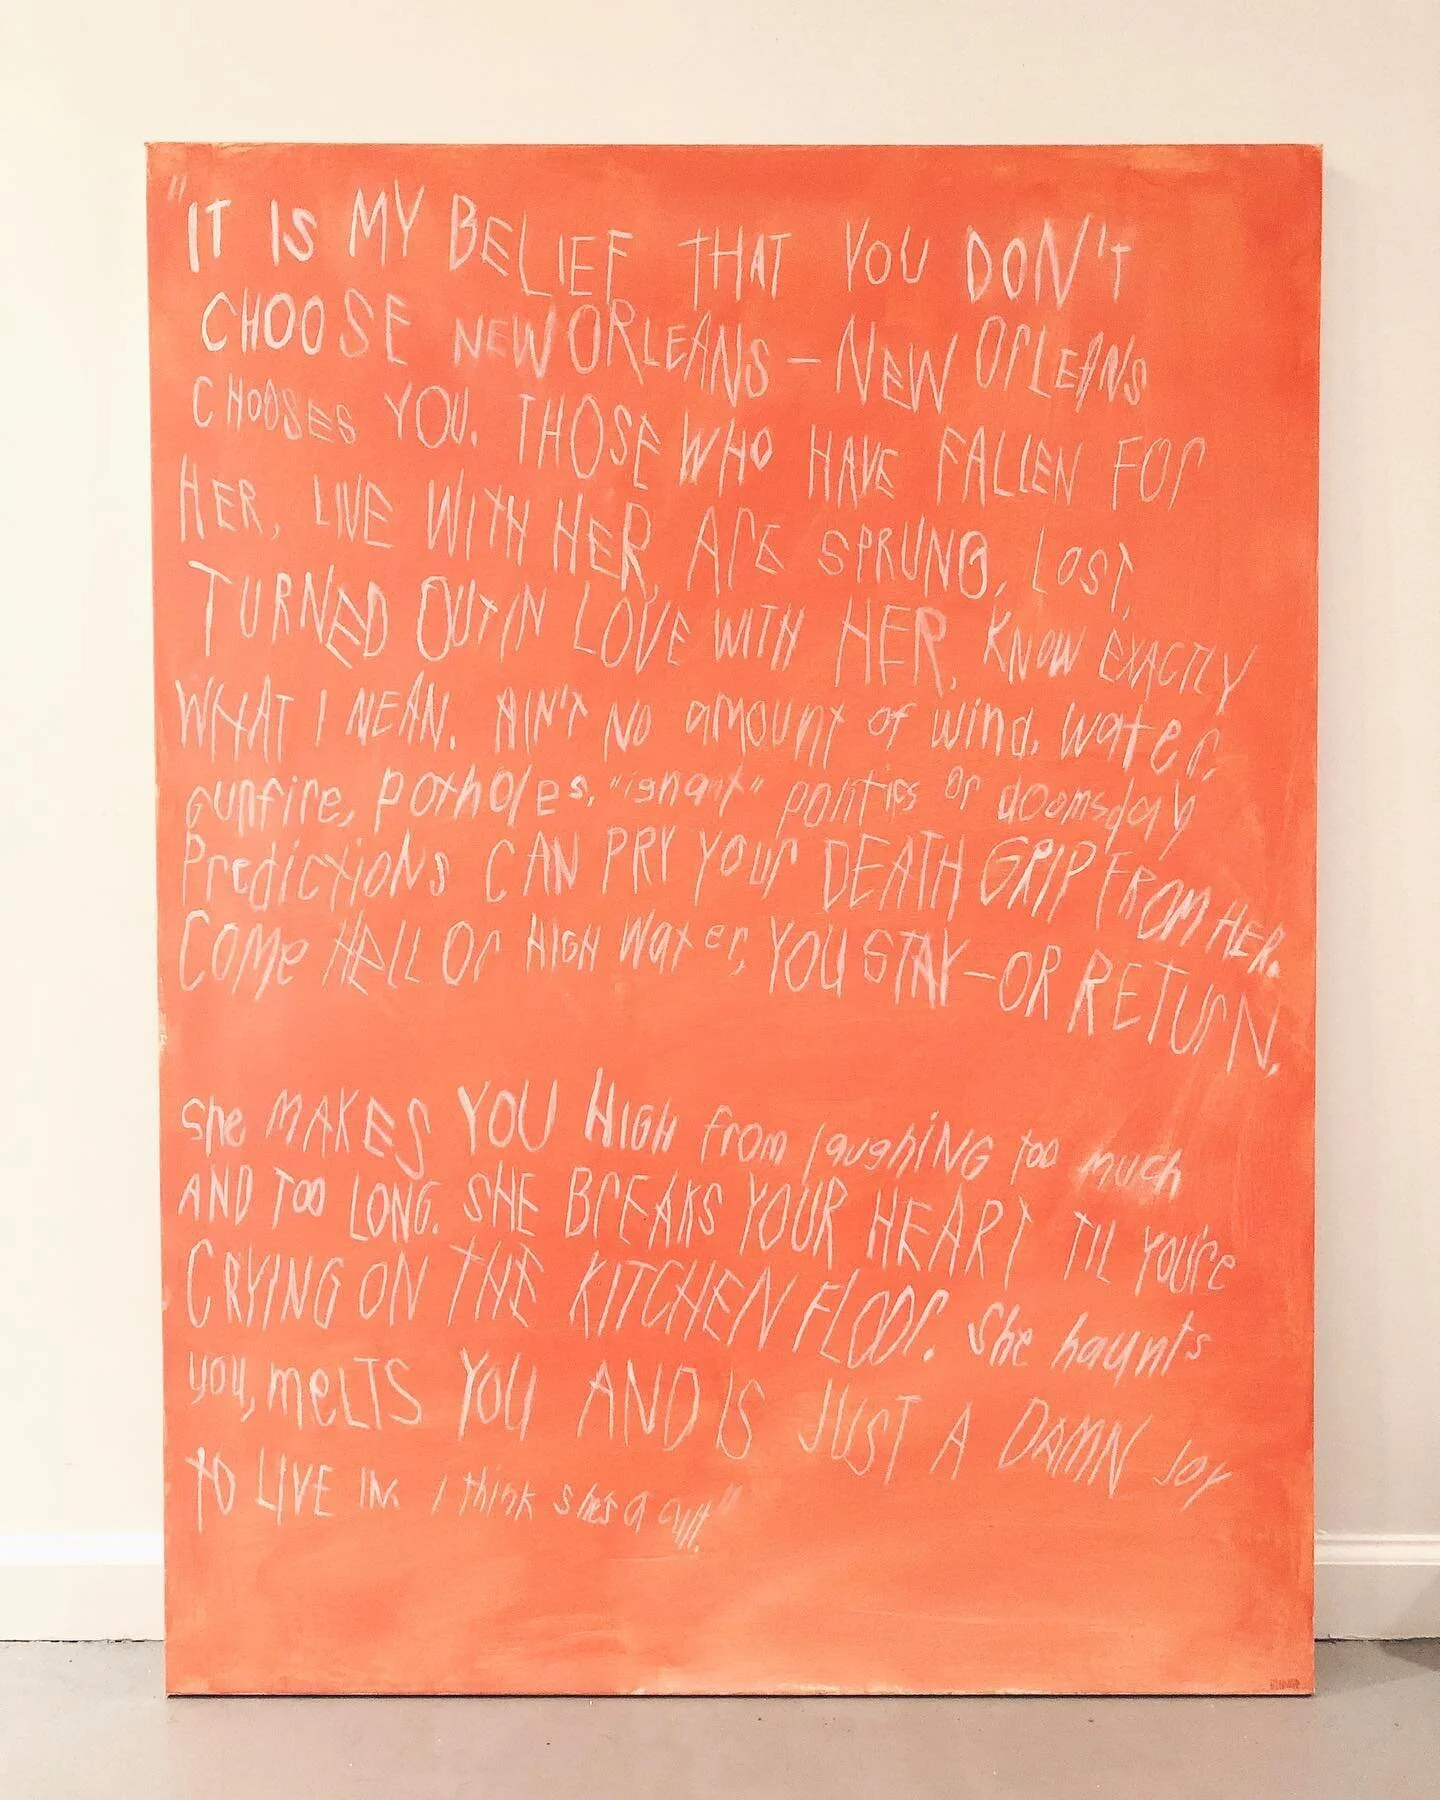 "IT IS MY BELIEF THAT YOU DON'T
CHOOSE NEW ORLEANS – NEW ORLEANS
CHOOSES YOU. THOSE WHO HAVE FALLEN FOR
HER, LIVE WITH HER, ARE SPRUNG, LOST,
TURNED OUT IN LOVE WITH HER, KNOW EXACTLY
WHAT I MEAN. AIN'T NO amOUNT of wind, water,
gunfire, potholes, "ignant" politics or doomsday
PredictIONs CAN PRY YOUr DEATH GRIP FROM HER.
COMe HELL Or HIGH Water, YOU STAY – OR RETURN.
She MAKES YOU HIGH from laughiNG too much
AND TOO LONG. SHE BREAKS YOUR HEART TIL YOU're
CRYING ON THE KITCHEN FLOOR. She haunts
you, meLTS YOU AND IS JUST A DAMN JOY
TO LIVE IN. I think she's a cult."